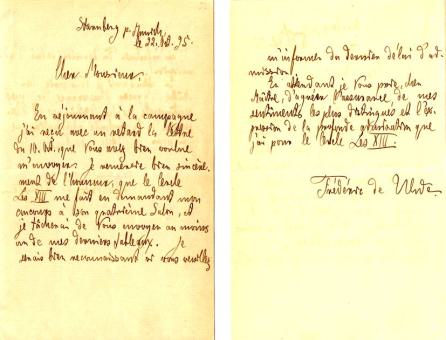 Starnberg p. Munich
le 22. Oct. 95.
Cher Monsieur,
En séjournant à la campagne
j'ai reçu avec un retard la lettre
du 10. Oct., que vous avez bien voulu
m'envoyer. Je remercie bien sincère-
ment de l'honneur, que le Cercle
Les XIII me fait en demandant mon
concours à son quatrième Salon, et
je tâcherai de vous envoyer au moins
un de mes derniers tableaux. Je
serais bien reconnaissant si vous veuillez
m'informer du dernier délai d'ad-
mission.
En attendant je vous prie, cher
Maître, d'agréer l'assurance de mes
sentiments les plus distingués et l'ex-
pression de la profonde admiration que
j'ai pour le Cercle Les XIII.
Frédéric de Uhde.